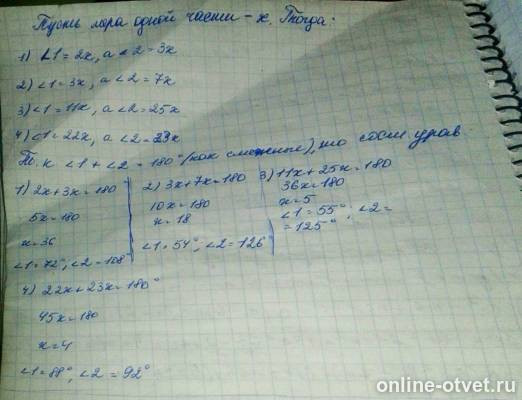 Пусть мера одной части - x. Тогда:
1) ∠1 = 2x, а ∠2 = 3x
2) ∠1 = 3x, а ∠2 = 7x
3) ∠1 = 11x, а ∠2 = 25x
4) ∠1 = 22x, а ∠2 = 23x
Т.к ∠1 + ∠2 = 180° (как смежные), то сост. урав.
1) 2x+3x=180°
5x=180
x=36
∠1=72°; ∠2=108°
2) 3x+7x=180
10x=180
x=18
∠1=54°; ∠2=126°
3) 11x+25x=180
36x=180
x=5
∠1=55°; ∠2=
=125°
4) 22x+23x=180°
45x=180
x=4
∠1=88°; ∠2=92°
online-otvet.ru